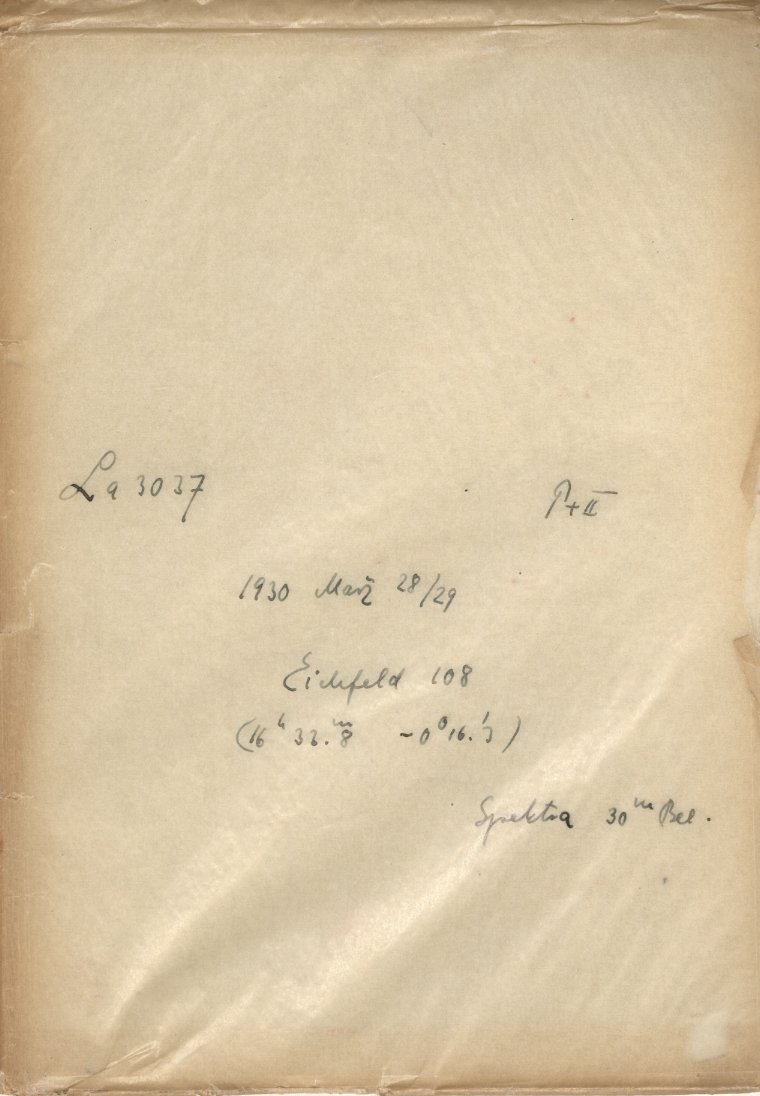 La 3037 P+II
1930 März 28/29
Eichfeld 108
(16ʰ 32.ᵐ8 -0⁰16.'3)
Spektra 30ᵐ Bel.